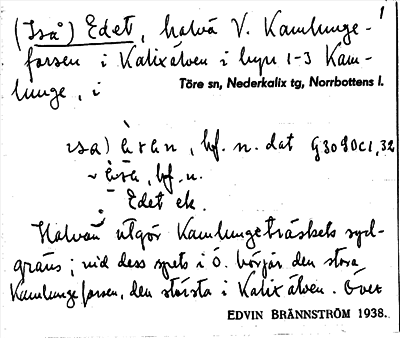 1
(Iså) Edet, halvö V. Kamlunge-
forsen i Kalixälven i byn 1-3 Kam-
lunge, i Töre sn, Nederkalix tg, Norrbottens l.
bf. n. dat G3090C1, 32
bf. n.
Edet ek.
Halvön utgör Kamlungeträskets syd-
gräns; vid dess spets i Ö. börjar den stora
Kamlungeforsen, den största i Kalixälven. Över
EDVIN BRÄNNSTRÖM 1938.